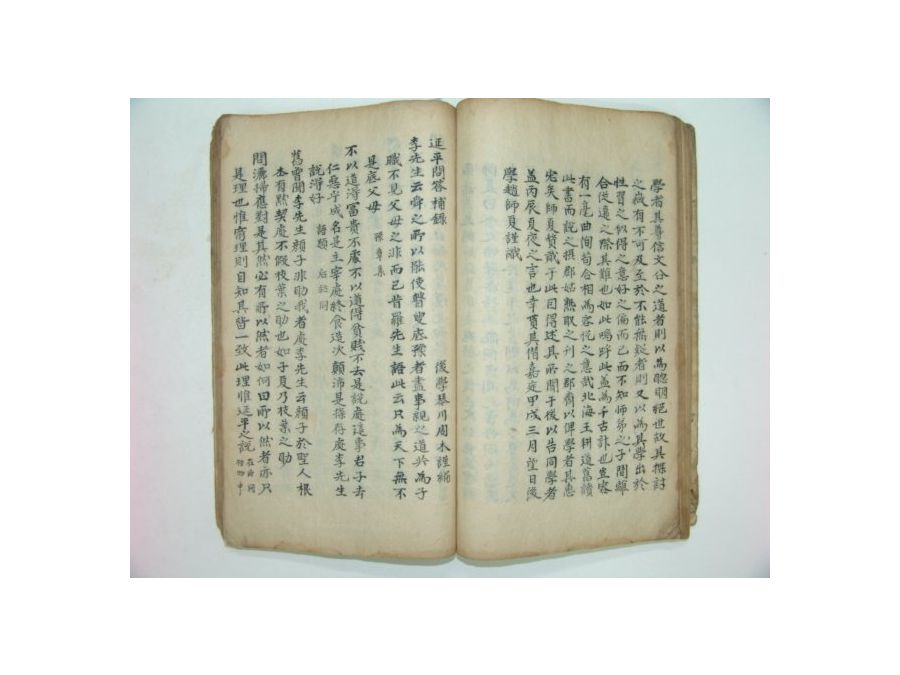 學者其尊信文公之道者則以爲聰明絕世故其探討
之微有不可及至於不能無疑者則又以爲其學出於
性習之似得之意好之偏而已而不知師弟之子間離
合從違之際其難也如此嗚呼此盖爲千古計也豈容
有一毫曲徇苟合相爲容悅之意哉北海王耕道舊讀
此書而說之攝郡姑熟取之刊之郡齋以俾學者其惠
宏矣師夏贅貳于此因得述其所聞于後以告同學者
盖丙辰夏夜之言也幸質其僭嘉定甲戌三月望日後
學趙師夏謹識
延平問答補錄
後學琴川周木謹編
李先生云舜之所以能使瞽叟底豫者盡事親之道共爲子
職不見父母之非而已昔羅先生語此云只爲天下無不
是底父母 豫章集
不以道得富貴不處不以道得貧賤不去是說處這事君子去
仁惡乎成名是主宰處終食造次顚沛是操存處李先生
說得好 語類 后並同
舊曾聞李先生顔子非助我者處李先生云顔子於聖人根
本有黙契處不假枝葉之助也如子夏乃枝葉之助
問灑掃應對是其然必有所以然者如何曰所以然者亦只
是理也惟窮理則自知其皆一致此理惟延平之說